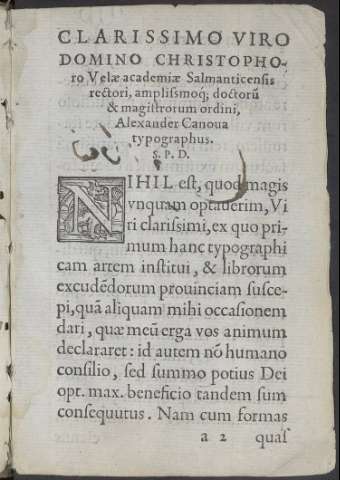 CLARISSIMO VIRO
DOMINO CHRISTOPHO-
ro Velæ academiæ Salmanticensis
rectori, amplissmoq́; doctorū
& magistrorum ordini,
Alexander Canoua
typographus.
S. P. D.
NIHIL est, quod magis
vnquam optauerim, Vi
ri clarissimi, ex quo pri-
mum hanc typographi
cam artem institui, & librorum
excudēdorum prouinciam susce-
pi, quā aliquam mihi occasionem
dari, quæ meū erga vos animum
declararet: id autem nō humano
consilio, sed summo potius Dei
opt. max. beneficio tandem sum
consequutus. Nam cum formas
a 2 quas